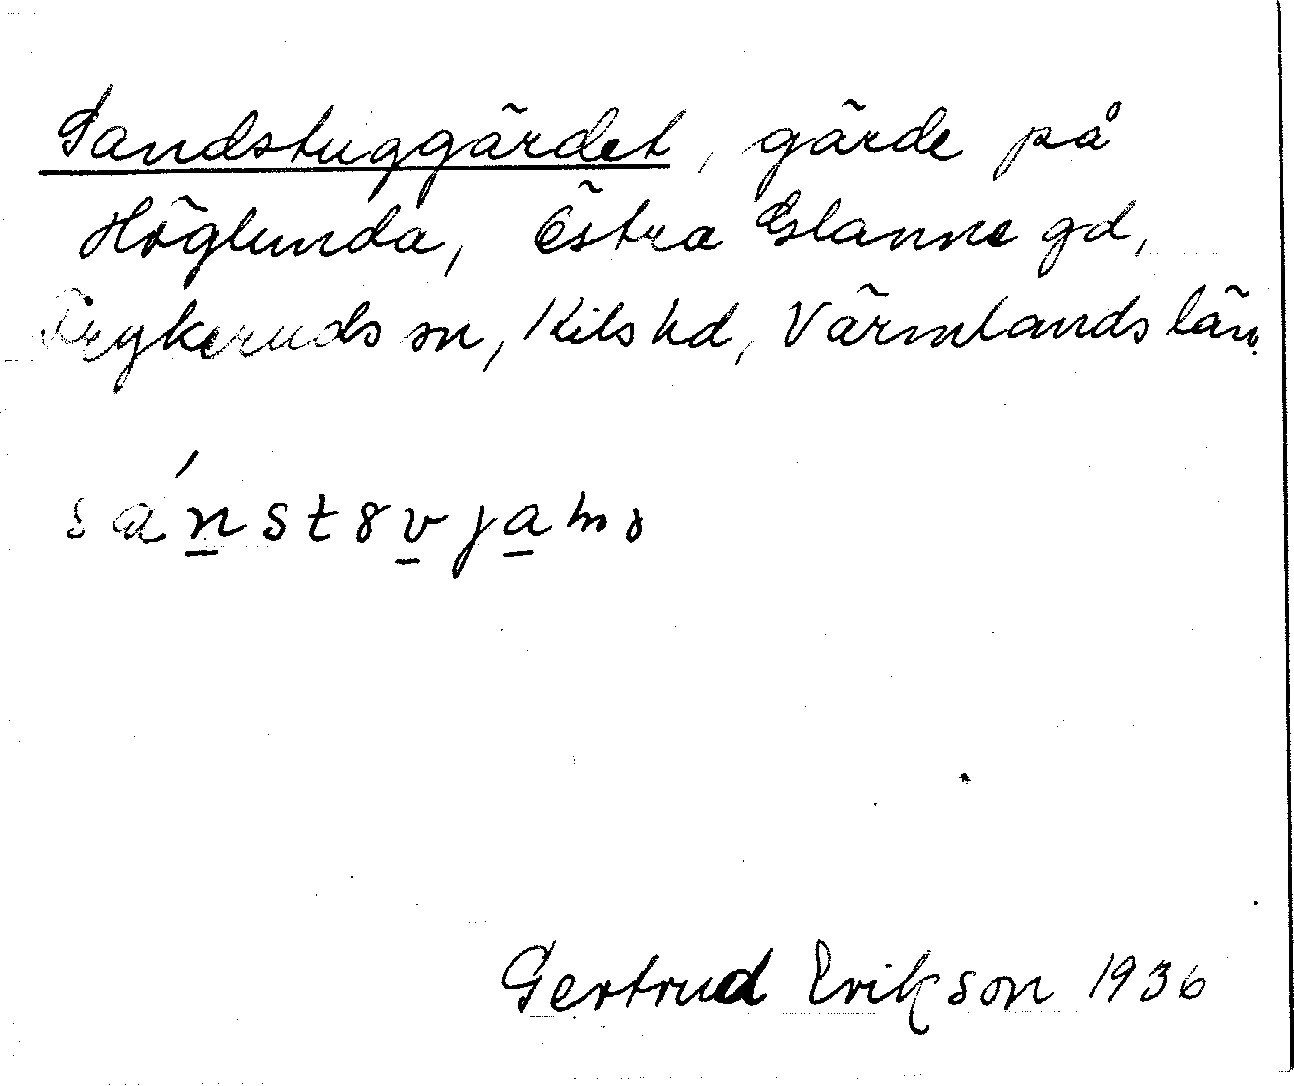 Sandstuggärdet, gärde på
Höglunda, Östra Glänne gd,
Frykeruds sn, Kils hd, Värmlands län.
Gertrud Erikson 1936